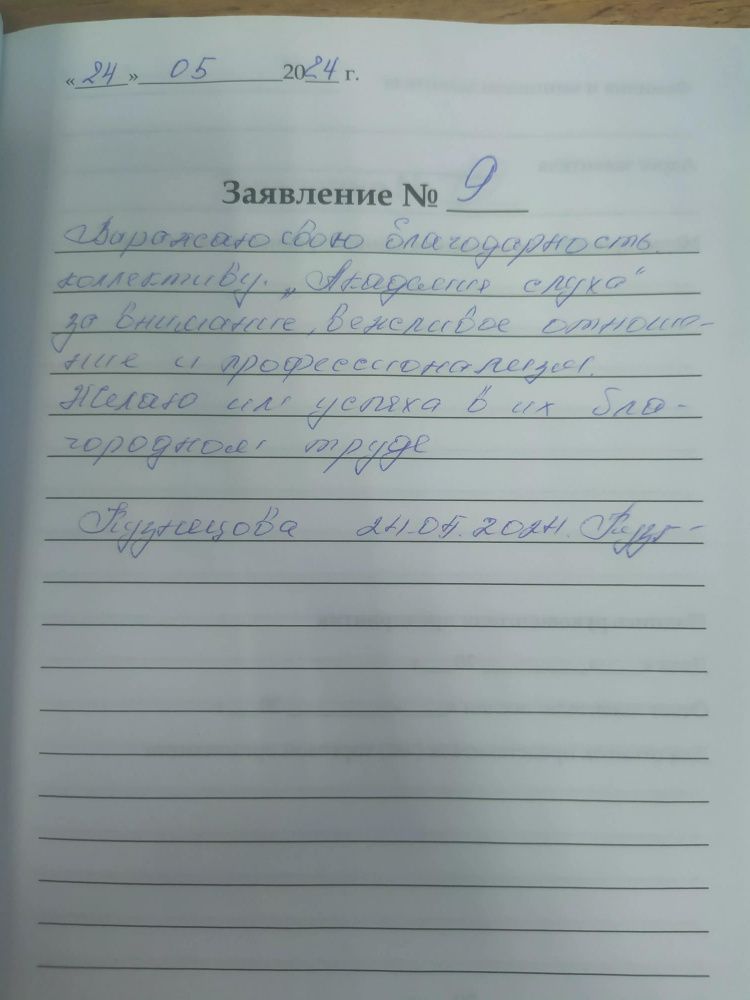 «24» 05 2024 г.
Заявление № 9
Выражаю свою благодарность
коллективу „Академия слуха“
за внимание, вежливое отноше-
ние и профессионализм.
Желаю им успеха в их бла-
городном труде
Кузнецова 24.05.2024. Куз-